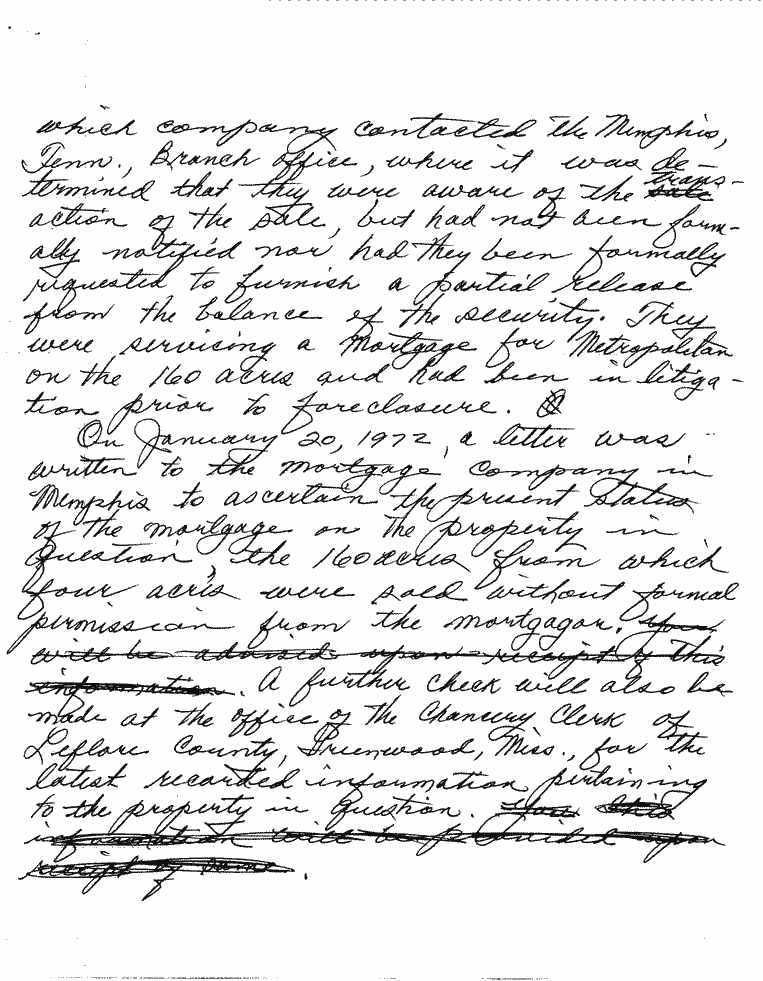 which company contacted the Memphis,
Tenn., Branch office, where it was de-
termined that they were aware of the sale trans-
action of the sale, but had not been form-
ally notified nor had they been formally
requested to furnish a partial release
from the balance of the security. They
were servicing a Mortgage for Metropolitan
on the 160 acres and had been in litiga-
tion prior to foreclosure.
On January 20, 1972, a letter was
written to the mortgage company in
Memphis to ascertain the present status
of the mortgage on the property in
Question, the 160 acres from which
four acres were sold without formal
permission from the mortgagor. You
will be advised upon receipt of this
information. A further check will also be
made at the office of the Chancery Clerk of
Leflore County, Greenwood, Miss., for the
latest recorded information pertaining
to the property in Question. You this
information will be provided upon
receipt of same.